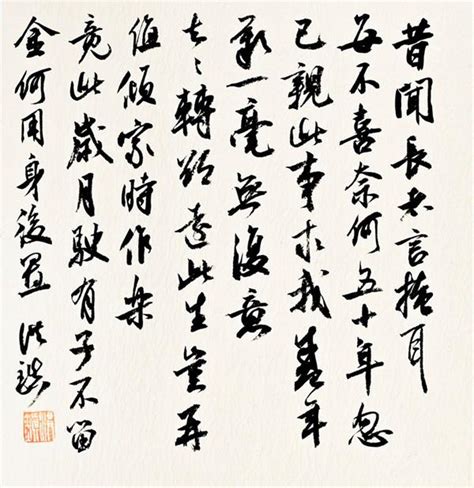 昔聞長老言掩耳
每不喜奈何五十年忽
已親此事求我盛年
歡一毫無復意
去〻轉欲遠此生豈再
值傾家時作樂
竟此歲月駛有子不留
金何用身後置